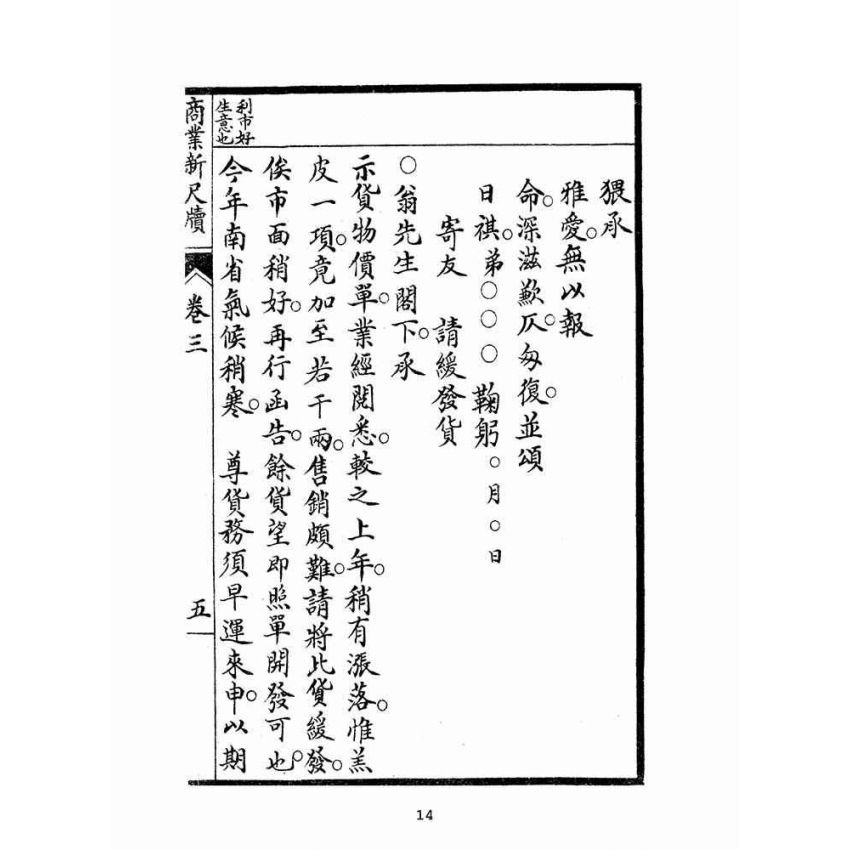 猥承
雅愛。無以報
命。深滋歉仄。匆復。並頌
日祺。弟○○○鞠躬○月○日
寄友　請緩發貨
○翁先生閣下。承
示貨物價單。業經閱悉。較之上年。稍有漲落。惟羔
皮一項。竟加至若干兩。售銷頗難。請將此貨緩發。
俟市面稍好。再行函告。餘貨望即照單開發可也。
今年南省氣候稍寒。　尊貨務須早運來申。以期
利市好
生意也
商業新尺牘
卷三
五
14